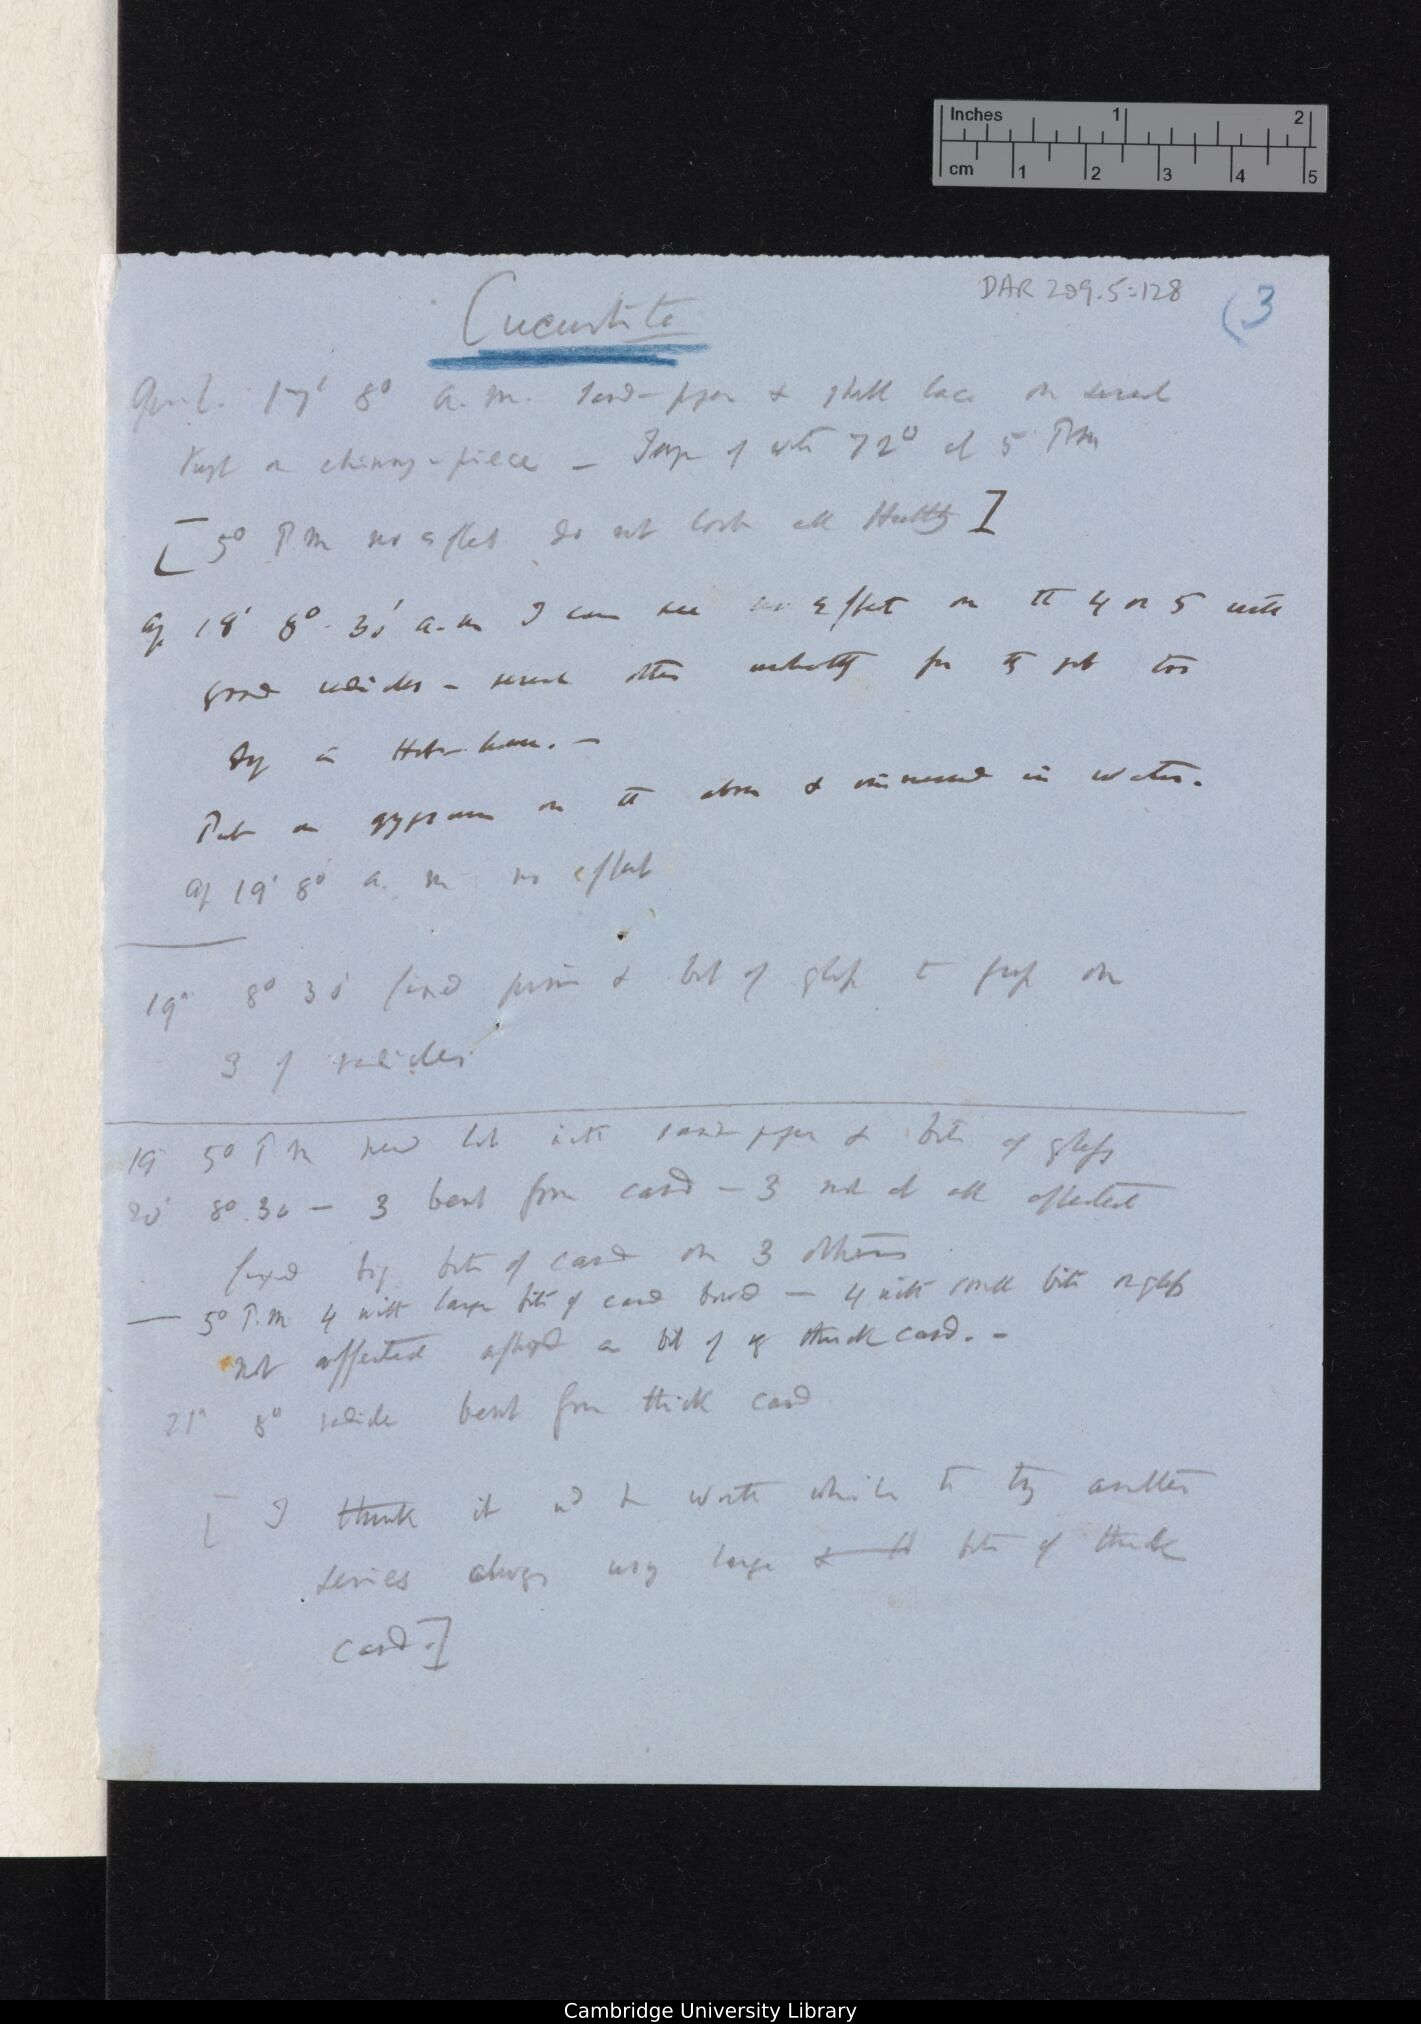 Inches 1 2
cm 1 2 3 4 5
DAR 209.5:128
(3
Cucurbita
April. 17' 8° a.m. sand-paper & shell lac on several
Kept on chimney-piece — Temp of water 72° at 5 P.M
[5° P.M no effect do not look all Healthy]
Ap 18' 8°. 30' a.m I can see no effect on the 4 or 5 with
good radicles — several others unhealthy for they got too
dry in Hot-house. —
Put on gypsum on the above & immersed in water.
Ap 19' 8° a. m no effect
19" 8° 30' fixed & bit of glass to on
3 of radicles
19 5° P M new lot with sand paper & bits of glass
20' 8°.30 — 3 bent from card — 3 not at all affected
fixed big bits of card on 3 others
— 5° P.M 4 with large bits of card board — 4 with small bits or glass
not affected affixed a bit of thick card. —
21" 8° radicle bent from thick card
[ I think it wd be worth while to try another
series always using large & bits of thick
card.]
Cambridge University Library